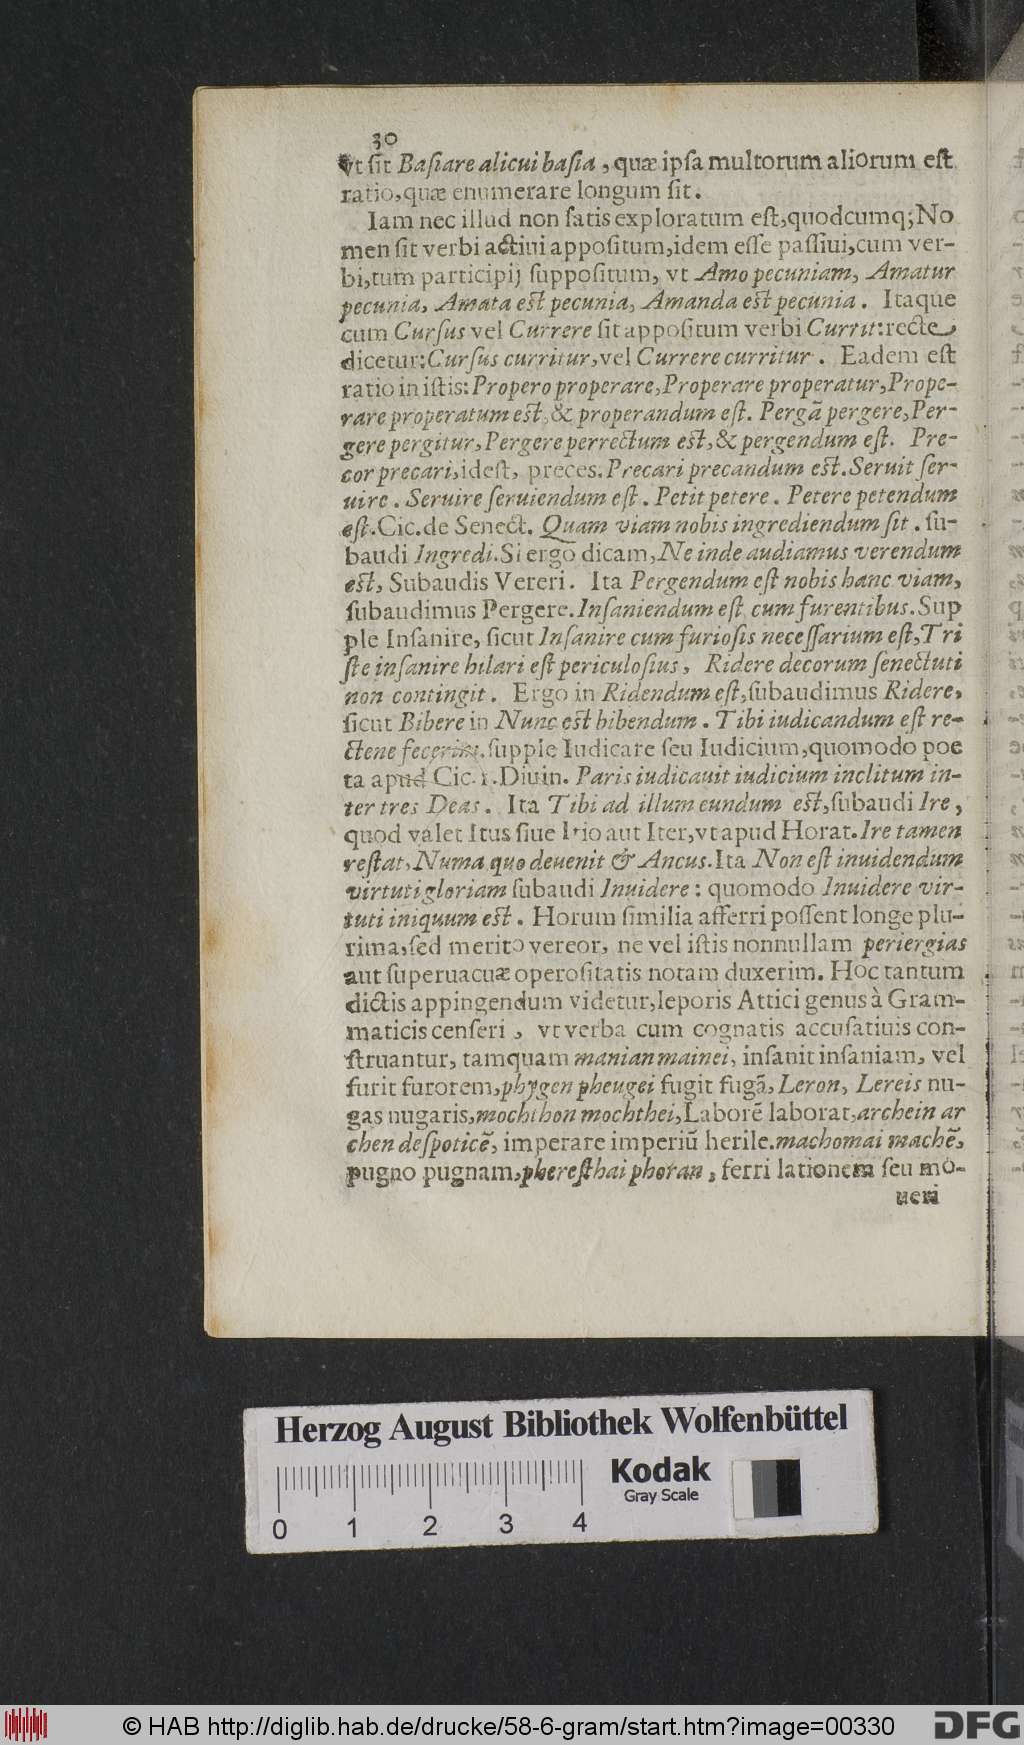 30
Vt sit Basiare alicui basia, quæ ipsa multorum aliorum est
ratio, quæ enumerare longum sit.
Iam nec illud non satis exploratum est, quodcumq; No
men sit verbi actiui appositum, idem esse passiui, cum ver-
bi, tum participij suppositum, vt Amo pecuniam, Amatur
pecunia, Amata est pecunia, Amanda est pecunia. Itaque
cum Cursus vel Currere sit appositum verbi Currit: recte
dicetur: Cursus curritur, vel Currere curritur. Eadem est
ratio in istis: Propero properare, Properare properatur, Prope-
rare properatum est, & properandum est. Pergã pergere, Per-
gere pergitur, Pergere perrectum est, & pergendum est. Pre-
cor precari, idest, preces. Precari precandum est. Seruit ser-
uire. Seruire seruiendum est. Petit petere. Petere petendum
est. Cic. de Senect. Quam viam nobis ingrediendum sit. su-
baudi Ingredi. Si ergo dicam, Ne inde audiamus verendum
est, Subaudis Vereri. Ita Pergendum est nobis hanc viam,
subaudimus Pergere. Insaniendum est cum furentibus. Sup
ple Insanire, sicut Insanire cum furiosis necessarium est, Tri
ste insanire hilari est periculosius, Ridere decorum senectuti
non contingit. Ergo in Ridendum est, subaudimus Ridere,
sicut Bibere in Nunc est bibendum. Tibi iudicandum est re-
ctene supple Iudicare seu Iudicium, quomodo poe
ta apud Cic. 1. Diuin. Paris iudicauit iudicium inclitum in-
ter tres Deas. Ita Tibi ad illum eundum est, subaudi Ire,
quod valet Itus siue Itio aut Iter, vt apud Horat. Ire tamen
restat, Numa quo deuenit & Ancus. Ita Non est inuidendum
virtuti gloriam subaudi Inuidere: quomodo Inuidere vir-
tuti iniquum est. Horum similia afferri possent longe plu-
rima, sed merito vereor, ne vel istis nonnullam periergias
aut superuacuæ operositatis notam duxerim. Hoc tantum
dictis appingendum videtur, leporis Attici genus à Gram-
maticis censeri, vt verba cum cognatis accusatiuis con-
struantur, tamquam manian mainei, insanit insaniam, vel
furit furorem, phygen pheugei fugit fugã, Leron, Lereis nu-
gas nugaris, mochthon mochthei, Laborẽ laborat, archein ar
chen despoticẽ, imperare imperiũ herile. machomai machẽ,
pugno pugnam, pheresthai phoran, ferri lationem seu mo-
ueri
Herzog August Bibliothek Wolfenbüttel
Kodak
Gray Scale
0 1 2 3 4
© HAB http://diglib.hab.de/drucke/58-6-gram/start.htm?image=00330
DFG